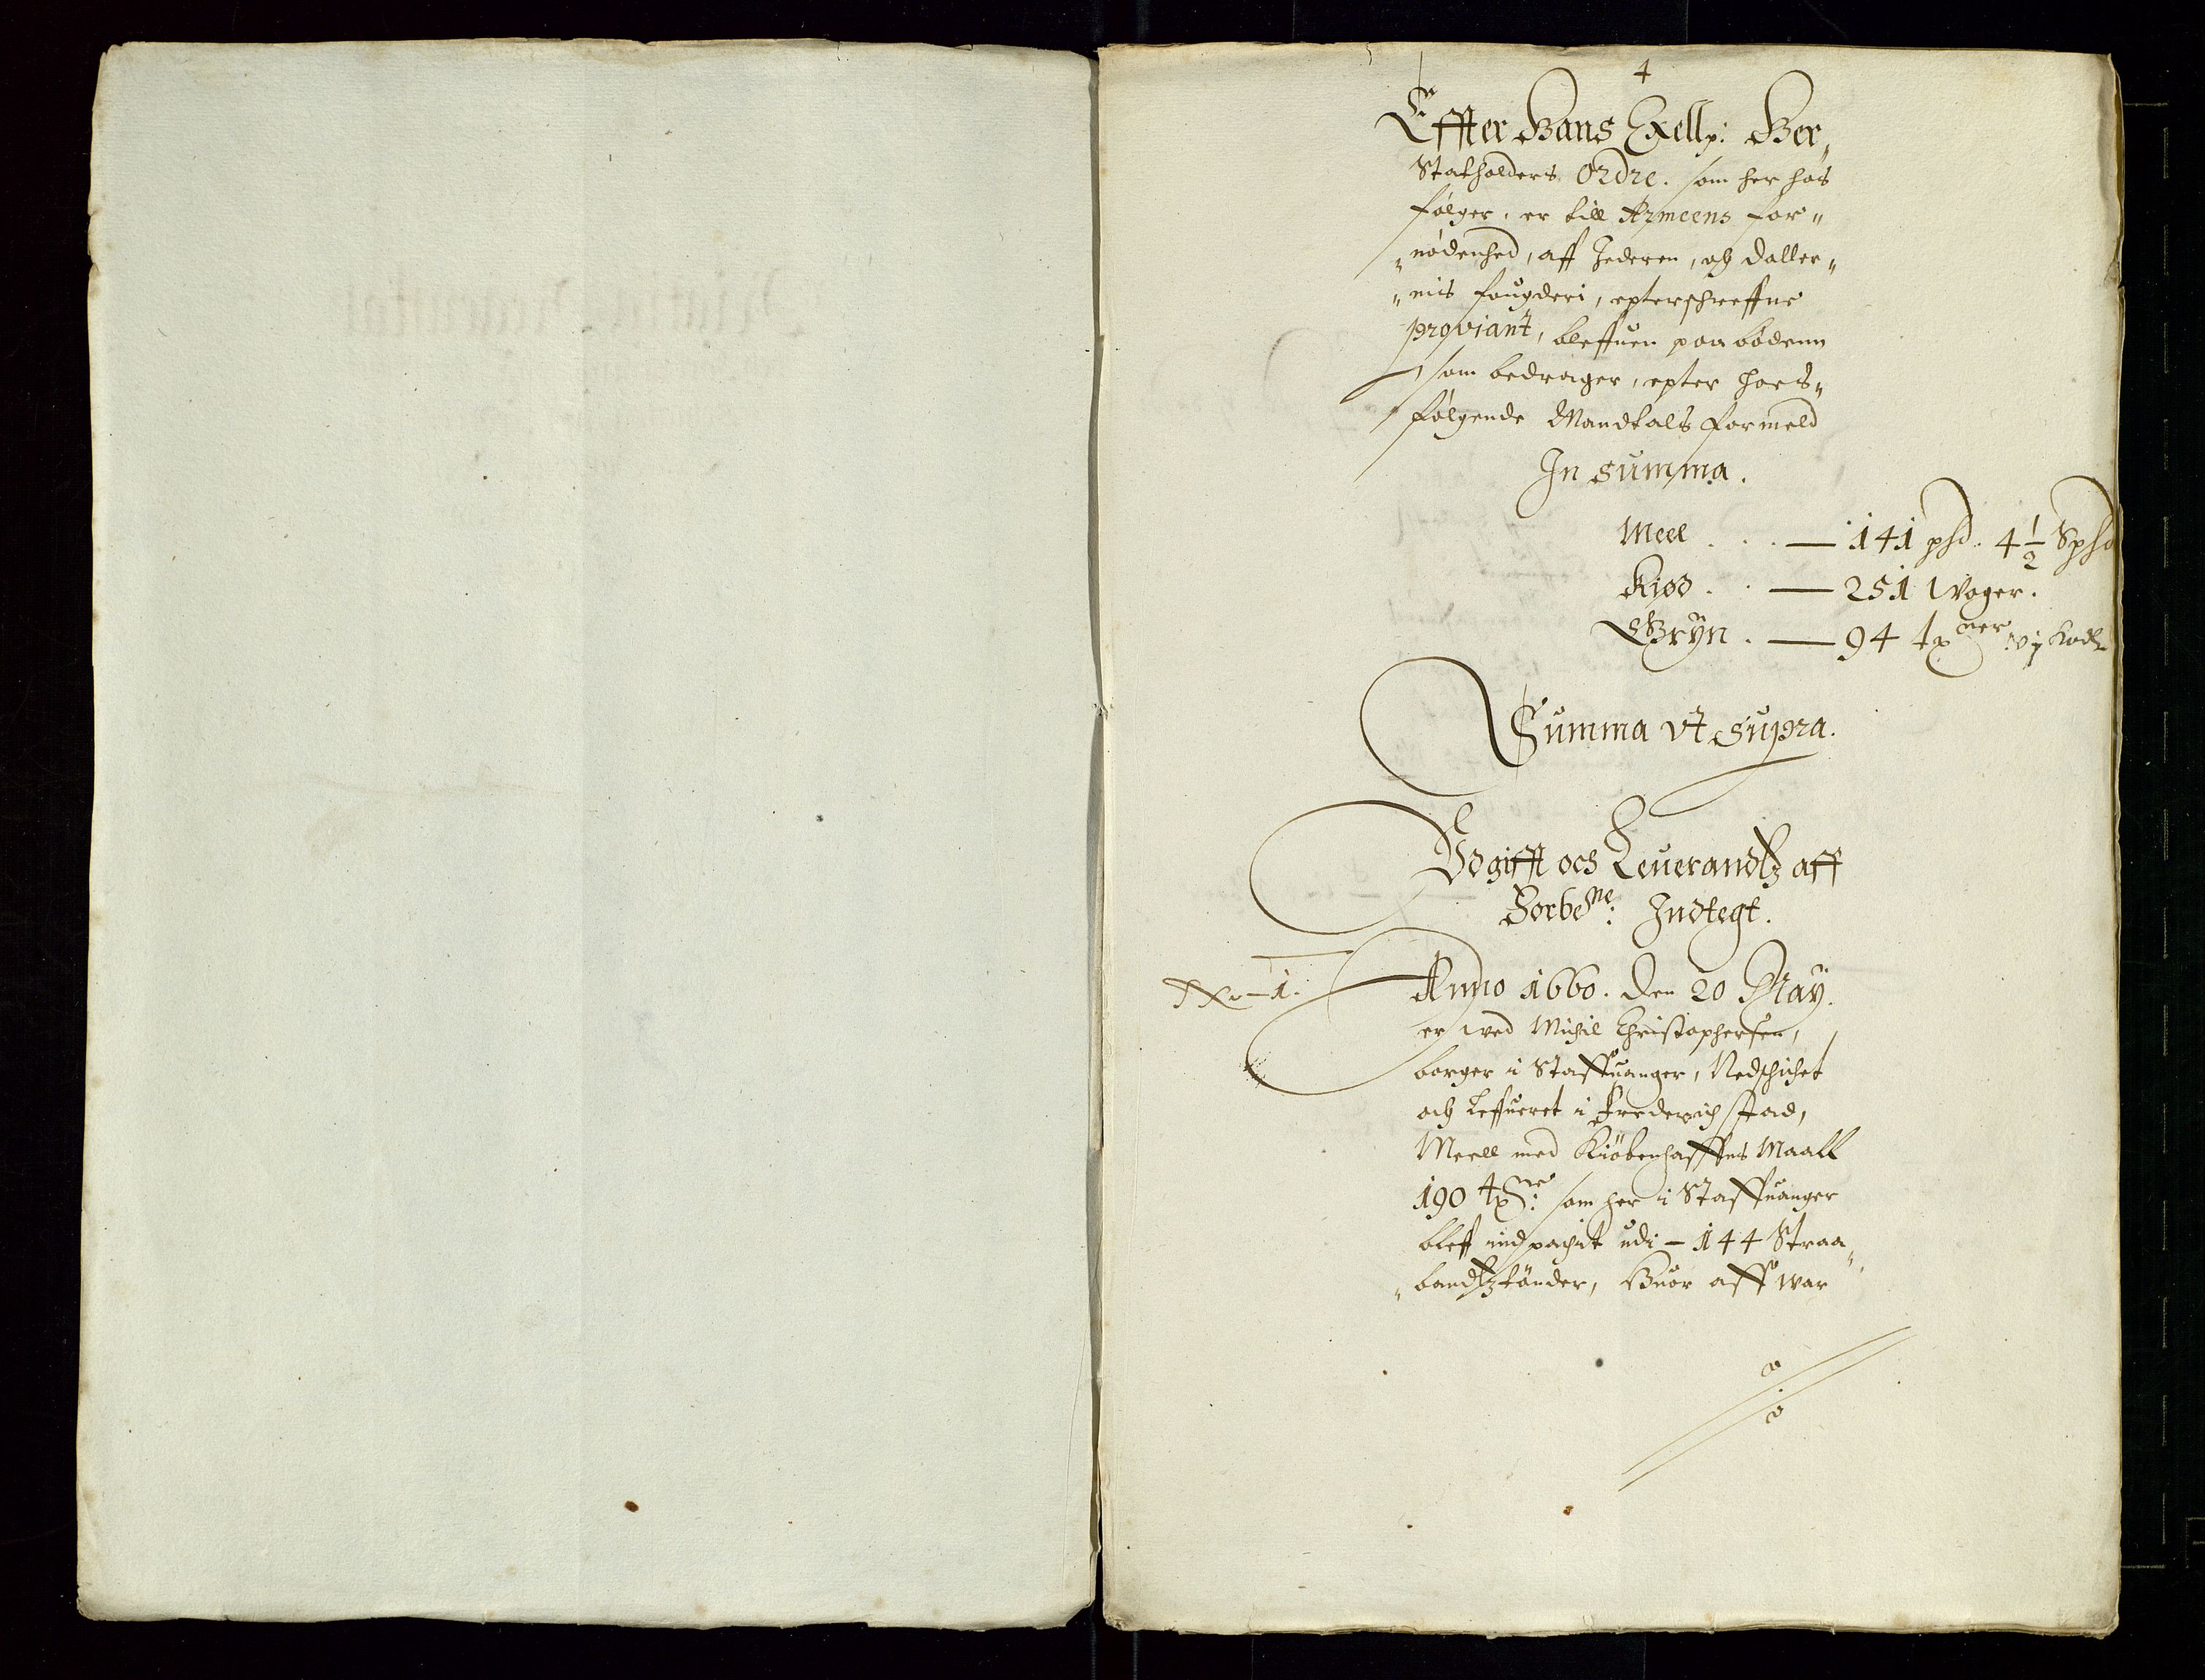 4
Effter Hans Exellp: Her,
Statholders Ordre. som her hos
følger, er till Armeens for„
„nödenhed, aff Jederen, och Daller„
„nis fougderi, epterschreffne
proviant, bleffuen paabödenn
som bedrager, epter hoes„
følgende Mandtals formeld
In Summa.
Meel . . . — 141 psd. 4 1/2 Spsd
Kiød . . — 251 Woger.
Gryn . — 94 tꝑner
Summa vt supra.
Vdgifft och Leuerandtz aff
Forbene: Indtegt.
No—1.
Anno 1660. den 20 May.
er wed Michil Christophersen,
borger i Staffuanger, Nedschichet
och Leffueret i Frederichstad,
Meell med Kiöbenhaffns Maall
190 tꝑne: som her i Staffuanger
bleff indpachit udi – 144 Straa„
„bandtztönder, Huor aff war